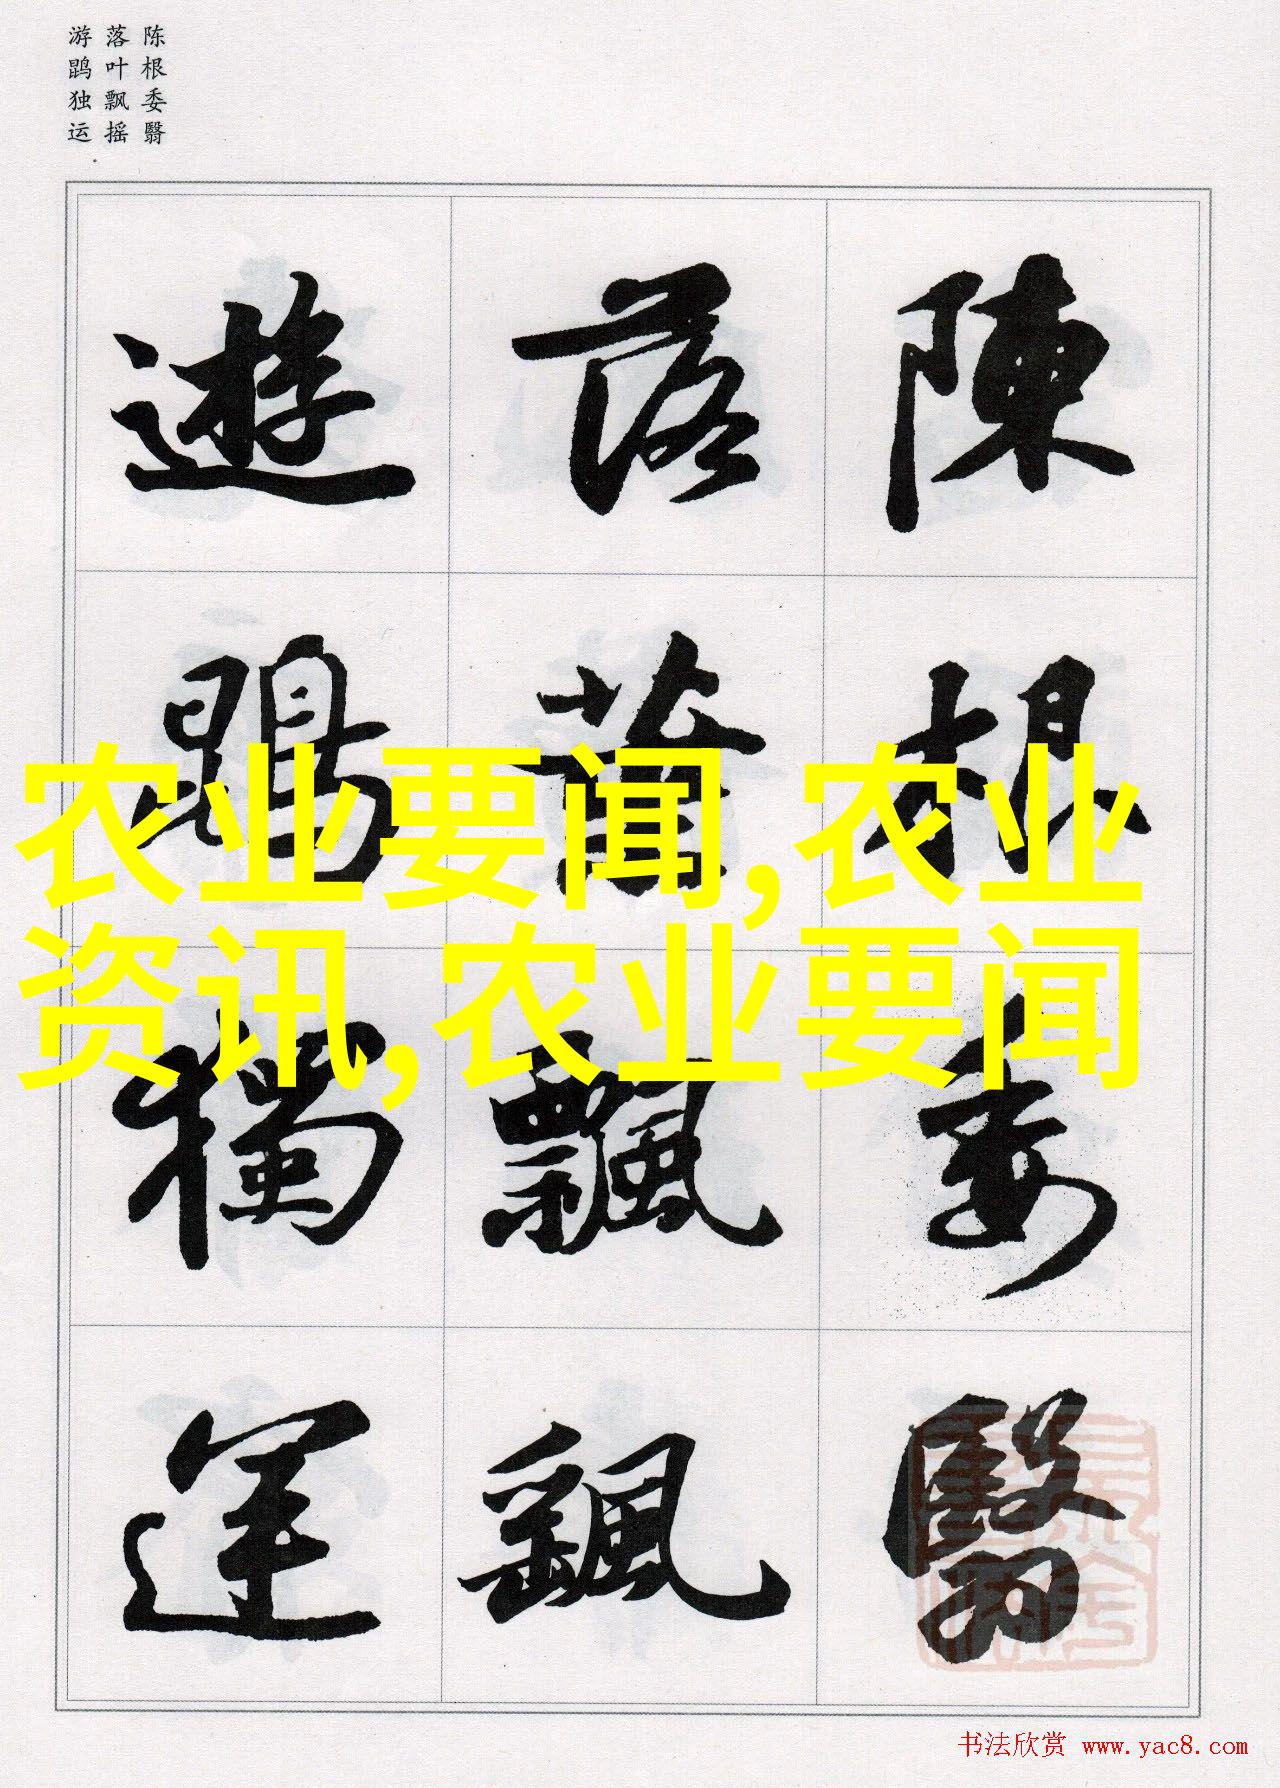 陈根委翳
落叶飘摇
游鹍独运
陳根委翳
落葉飄颻
遊鵾獨運
农业要闻,农业
资讯,农业要闻
书法欣赏 www.yac8.com